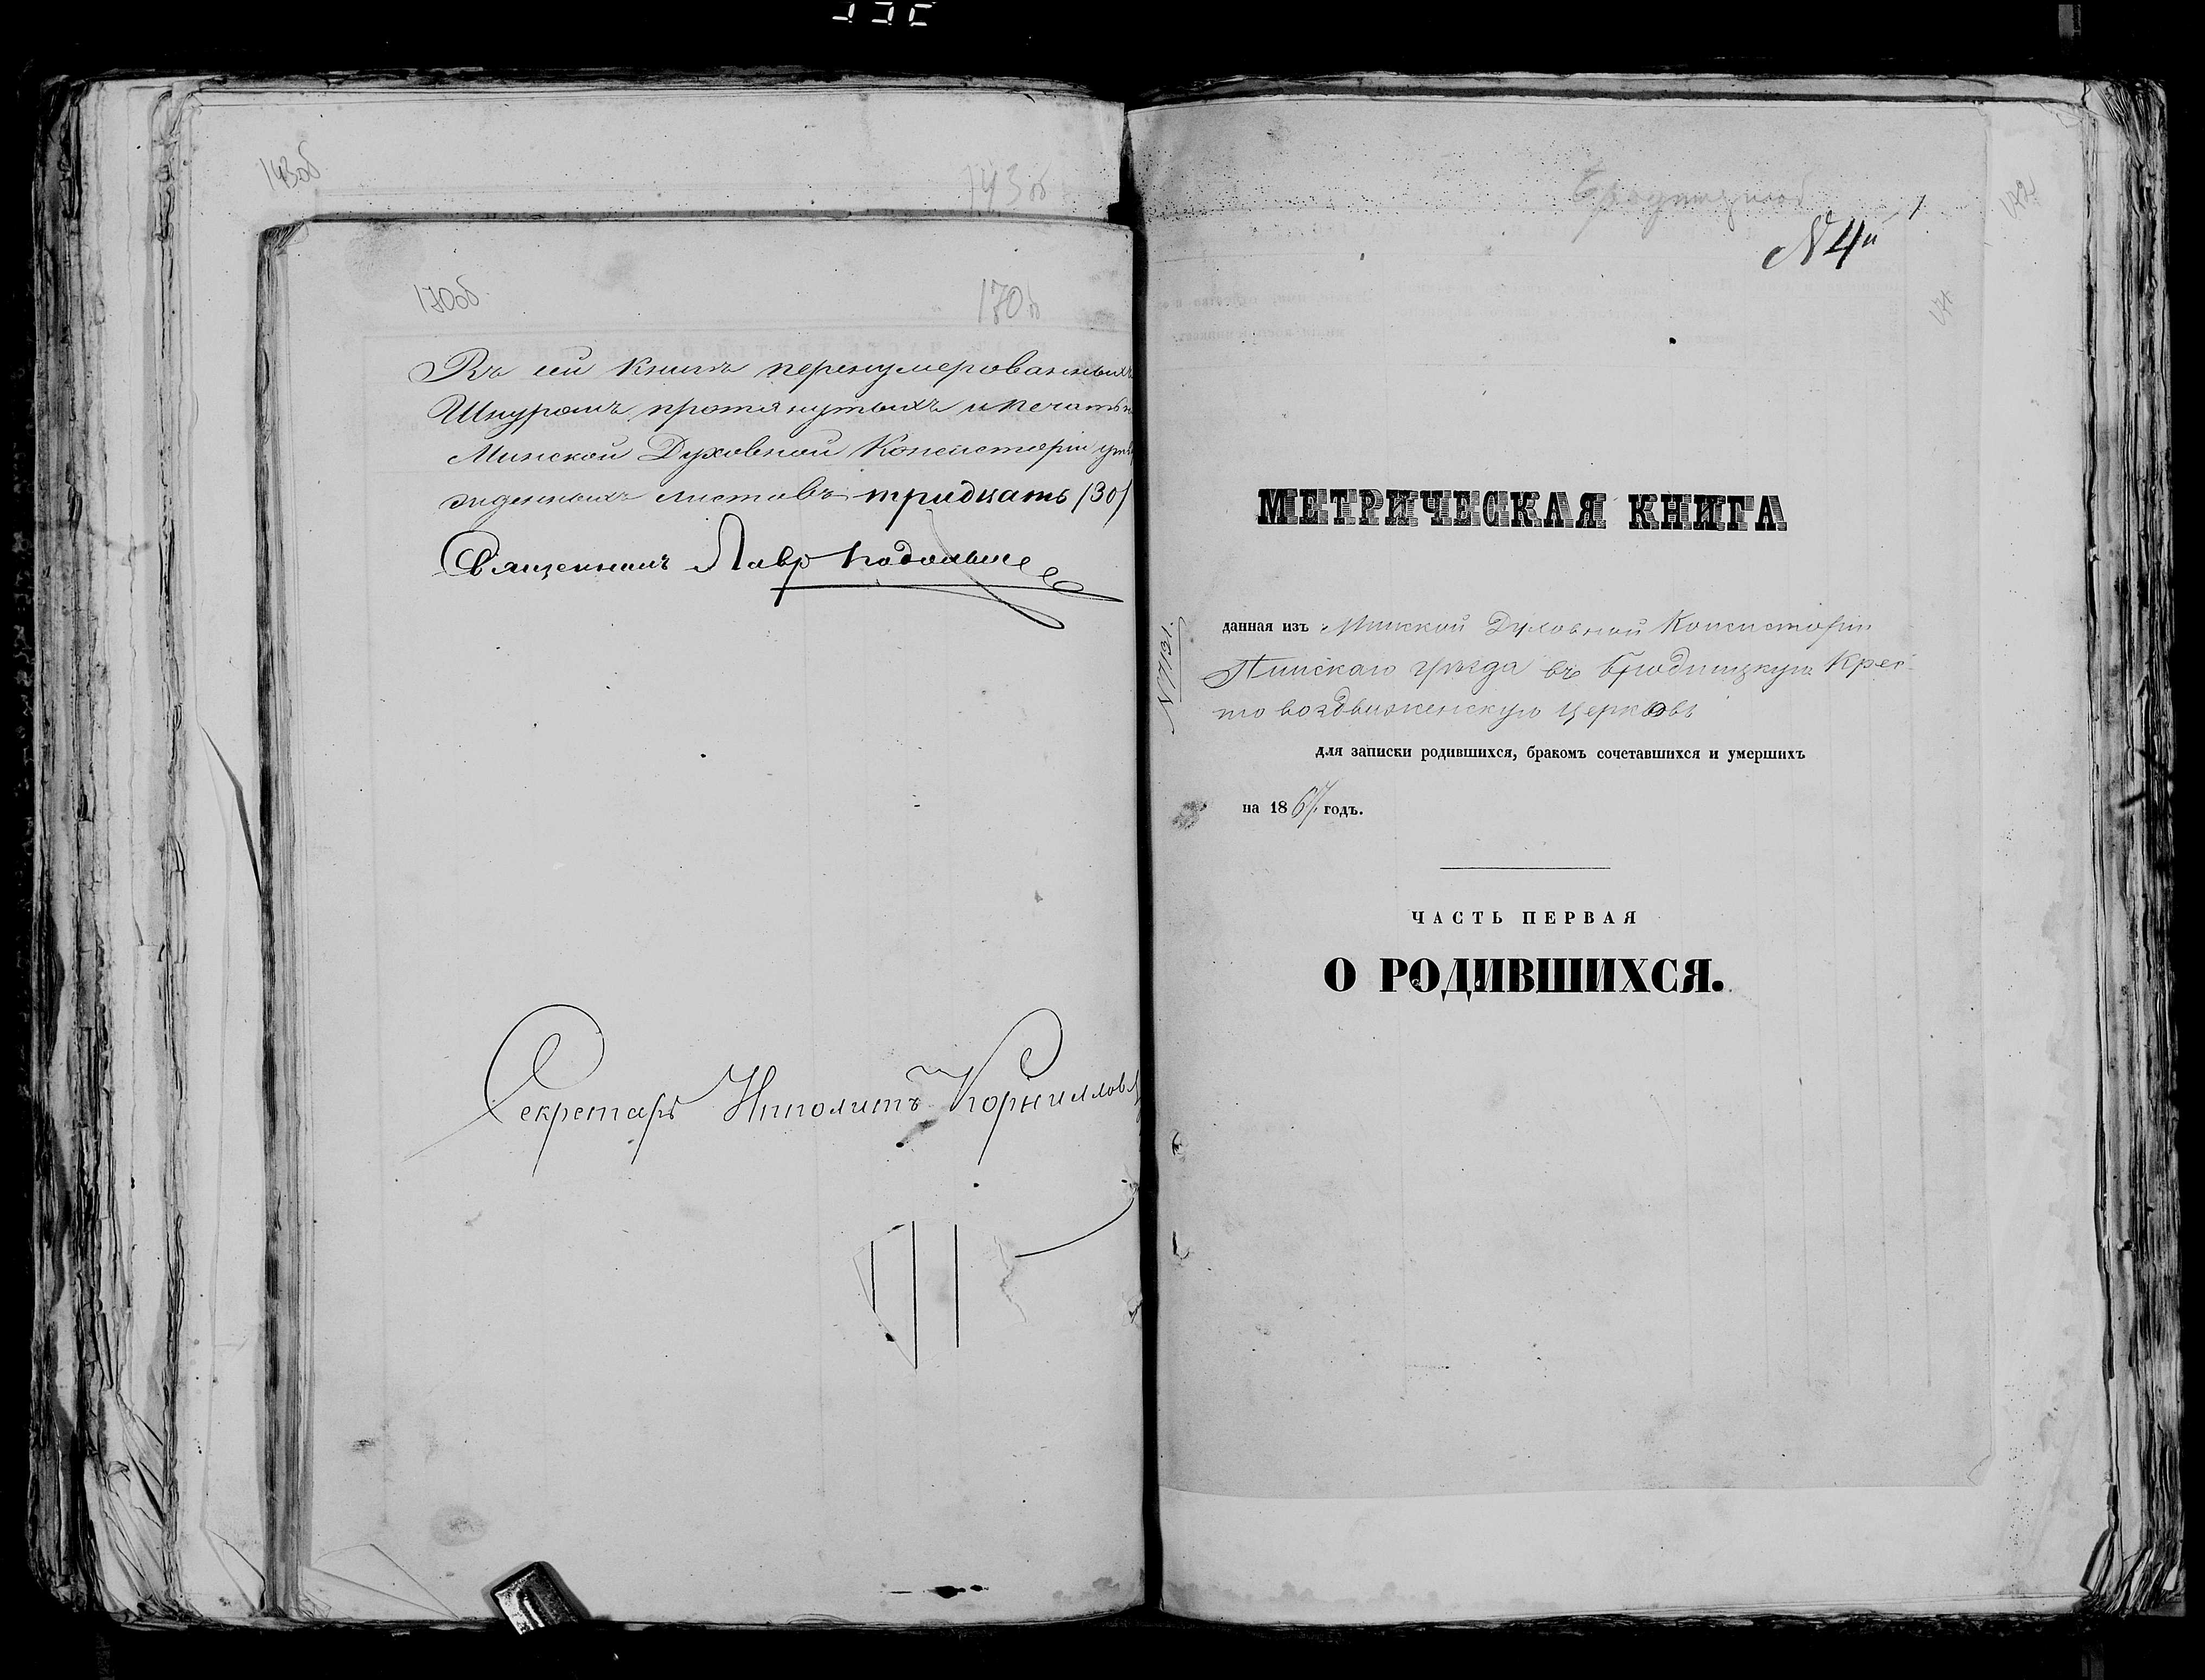 143об
143об
170об
170об
Въ сей книгѣ перенумерованныхъ
Шнуромъ протянутыхъ и печатью
Минской Духовной Консисторіи утвер
жденныхъ листовъ тридцать /30/
Священникъ Лавр
Секретарь Ипполитъ Корнилловъ
172
N 4й
1
171
МЕТРИЧЕСКАЯ КНИГА
N 7131.
данная изъ Минской Духовной Консисторіи
Пинскаго уѣзда въ Бродницкую Крес-
то воздвиженскую церковь
для записки родившихся, бракомъ сочетавшихся и умершихъ
на 1867 годъ.
ЧАСТЬ ПЕРВАЯ
О РОДИВШИХСЯ.